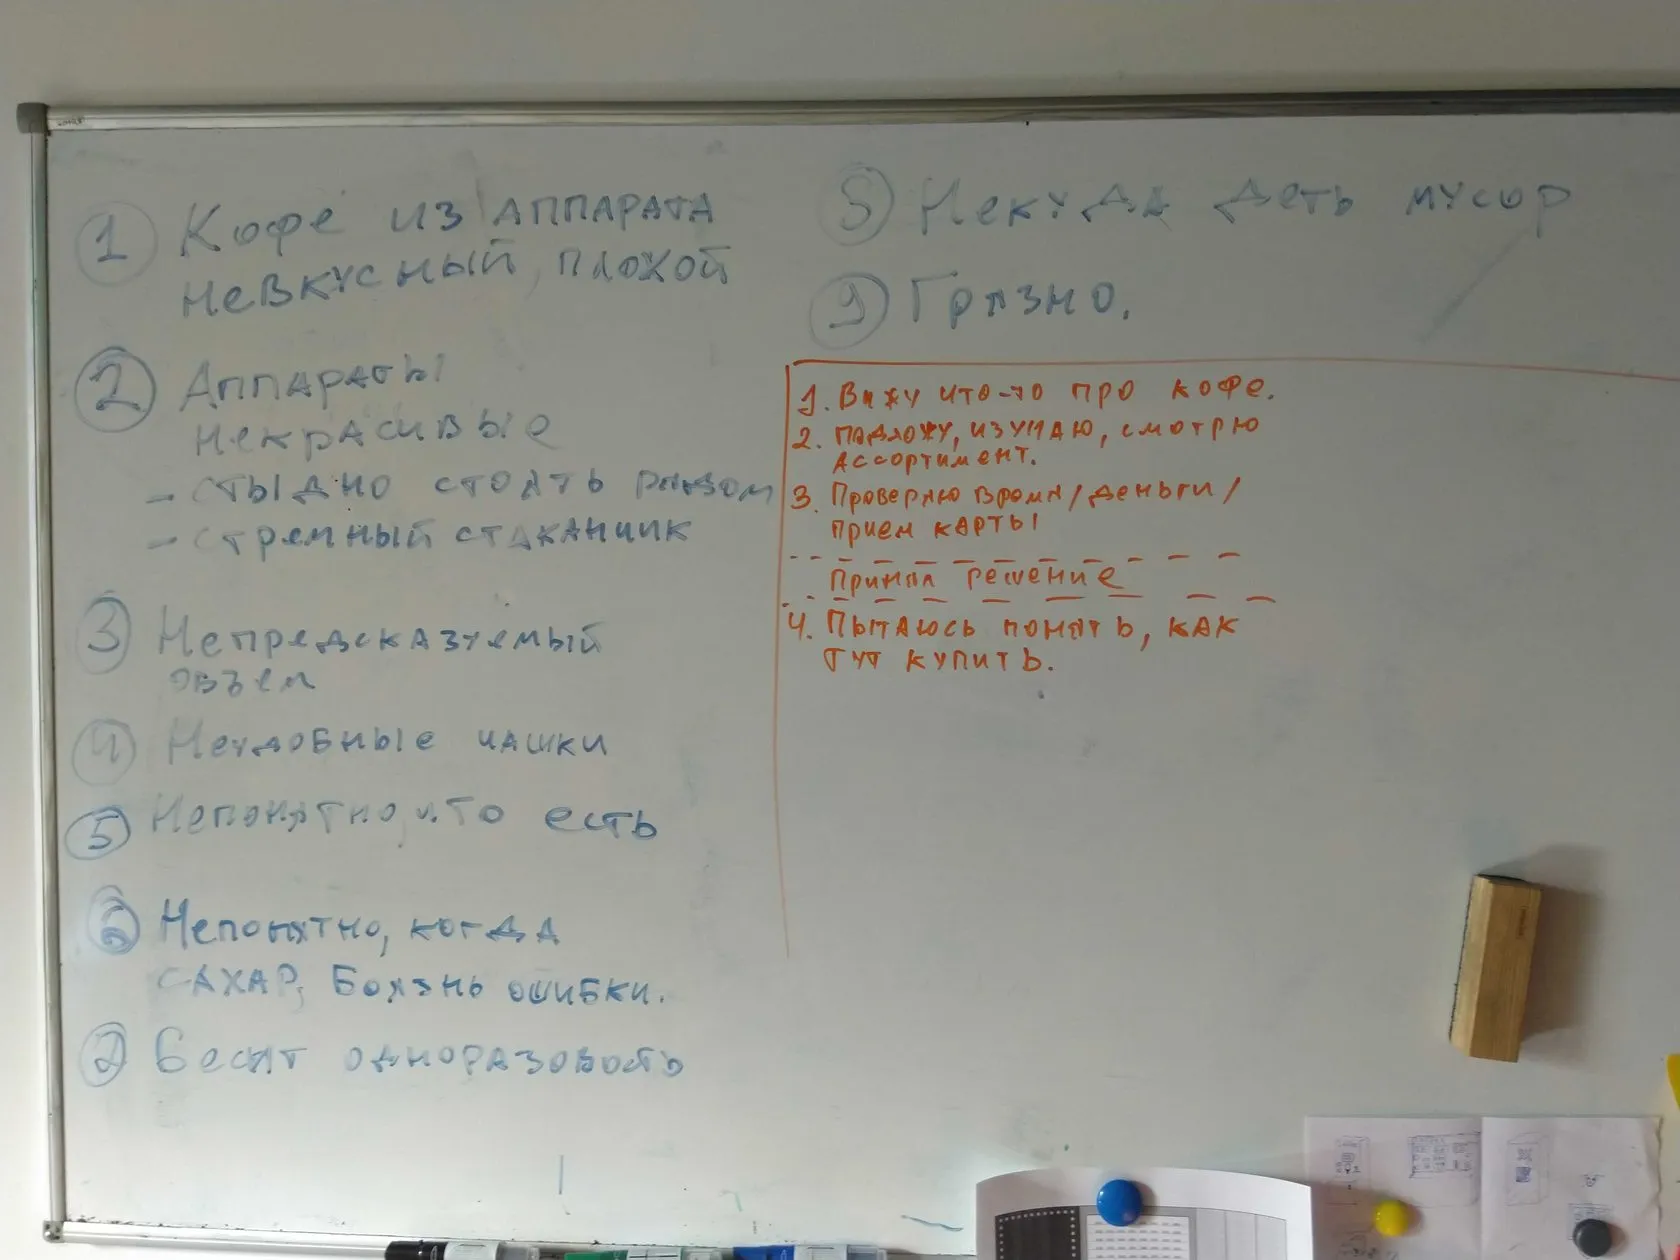 1 Кофе из аппарата
невкусный, плохой
2 Аппараты
некрасивые
- стыдно стоять рядом
- стремный стаканчик
3 Непредсказуемый
объем
4 Неудобные чашки
5 Непонятно, что есть
6 Непонятно, когда
сахар, боязнь ошибки.
7 Бесит одноразовость
8 Некуда деть мусор
9 Грязно.
1. Вижу что-то про кофе.
2. Подхожу, изучаю, смотрю
ассортимент.
3. Проверяю время/деньги/
прием карты
Принял решение
4. Пытаюсь понять, как
тут купить.